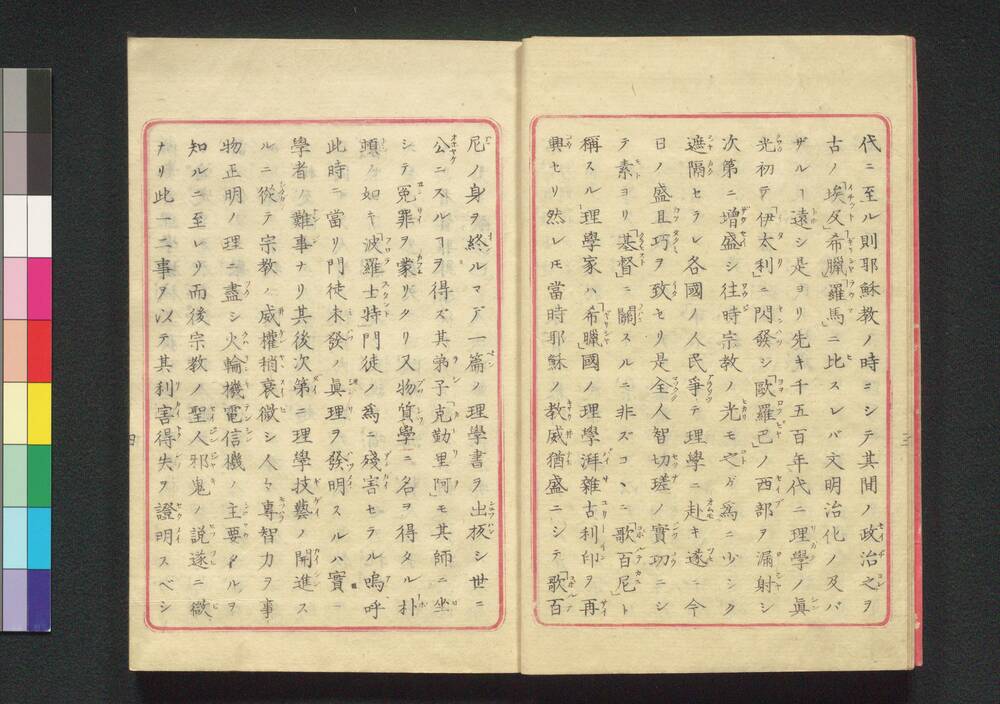 代ニ至ル則耶穌教ノ時ニシテ其間ノ政治之ヲ
古ノ「埃及」「希臘」「羅馬」ニ比スレバ文明治化ノ及バ
ザルヿ遠シ是ヨリ先キ千五百年代ニ理學ノ眞
光初テ「伊太利」ニ閃發シ「歐羅巴」ノ西部ヲ漏射シ
次第ニ增盛シ往時宗教ノ光モ之ガ爲ニ少シク
遮隔セラレ各國ノ人民爭テ理學ニ赴キ遂ニ今
日ノ盛且巧ヲ致セリ是全人智切瑳ノ實功ニシ
テ素ヨリ「基督」ニ關スルニ非ズコヽニ「歌百尼」ト
稱スル「理學家ハ「希臘」國ノ理學湃雜古利印ヲ再
興セリ然レ𪜈當時耶穌ノ教威猶盛ニシテ「歌百
尼ノ身ヲ終ルマデ一篇ノ理學書ヲ出板シ世ニ
公ニスルヿヲ得ズ其弟子「克勤里阿」モ其師ニ坐
シテ冤罪ヲ蒙リタリ又物質學ニ名ヲ得タル朴
頭ノ如キ「波羅士特」門徒ノ爲ニ殘害セラル嗚呼
此時ニ當リ門徒未發ノ眞理ヲ發明スルハ實ニ
學者ノ難事ナリ其後次第ニ理學技藝ノ開進ス
ルニ從テ宗教ノ威權稍衰微シ人々專智力ヲ事
物正明ノ理ニ盡シ火輪機電信機ノ主要タルヲ
知ルニ至レリ而後宗教ノ聖人邪鬼ノ說遂ニ微
ナリ此一二事ヲ以テ其利害得失ヲ證明スベシ